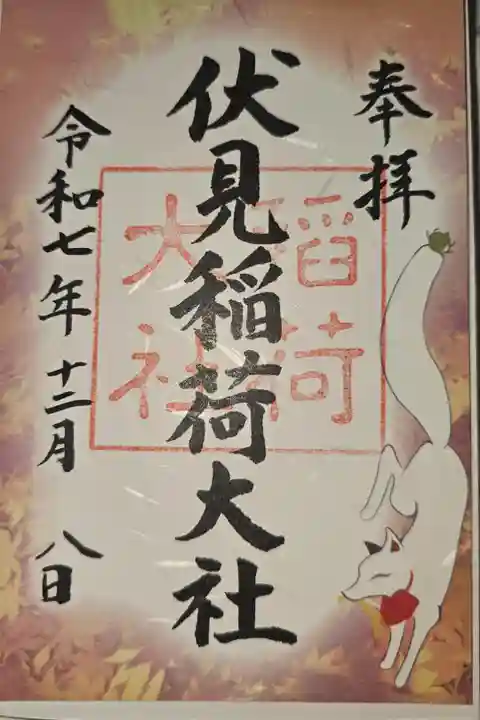 奉拝
伏見稲荷大社
稲荷
大社
令和七年 十二月 八日